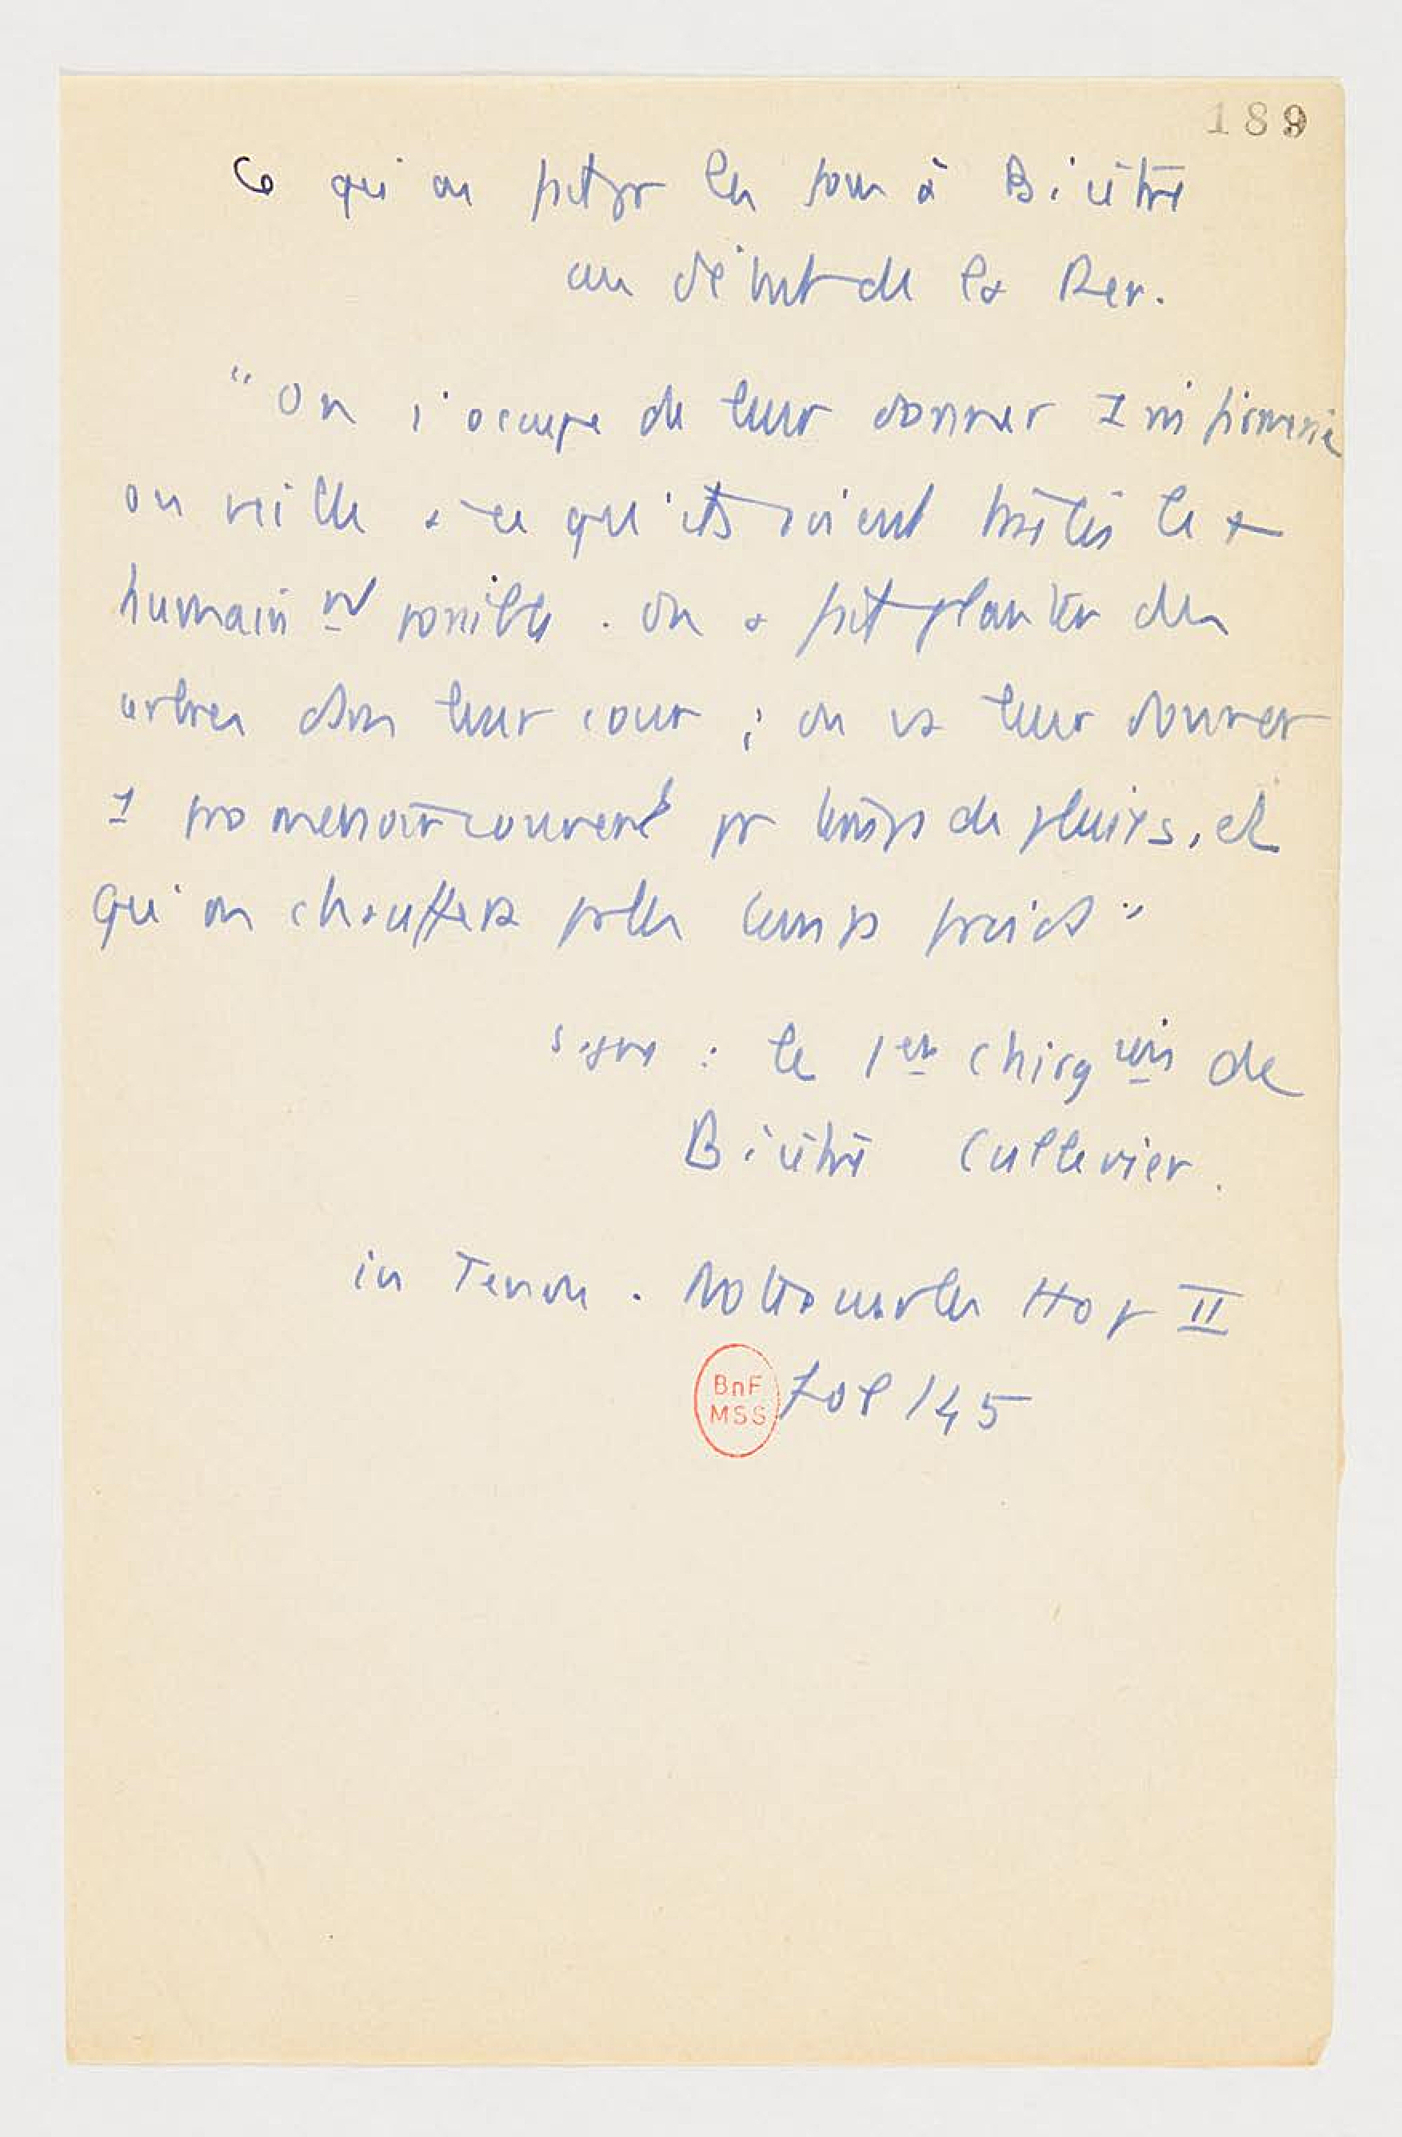 189
Ce qu'on fait pr les fous à Bicêtre
au début de la Rev.
"On s'occupe de leur donner 1 infirmerie
on veille à ce qu'ils soient traités le +
humain nt possible. On a fait planter des
arbres dans leur cour ; on va leur donner
1 promenoir couvert pr temps de pluies, et
qu'on chauffera pr les temps froids"
signé : le 1er chirg ien de
Bicêtre Cullerier.
in Tenon. Notes sur les Hop II
fol 145
BnF
MSS